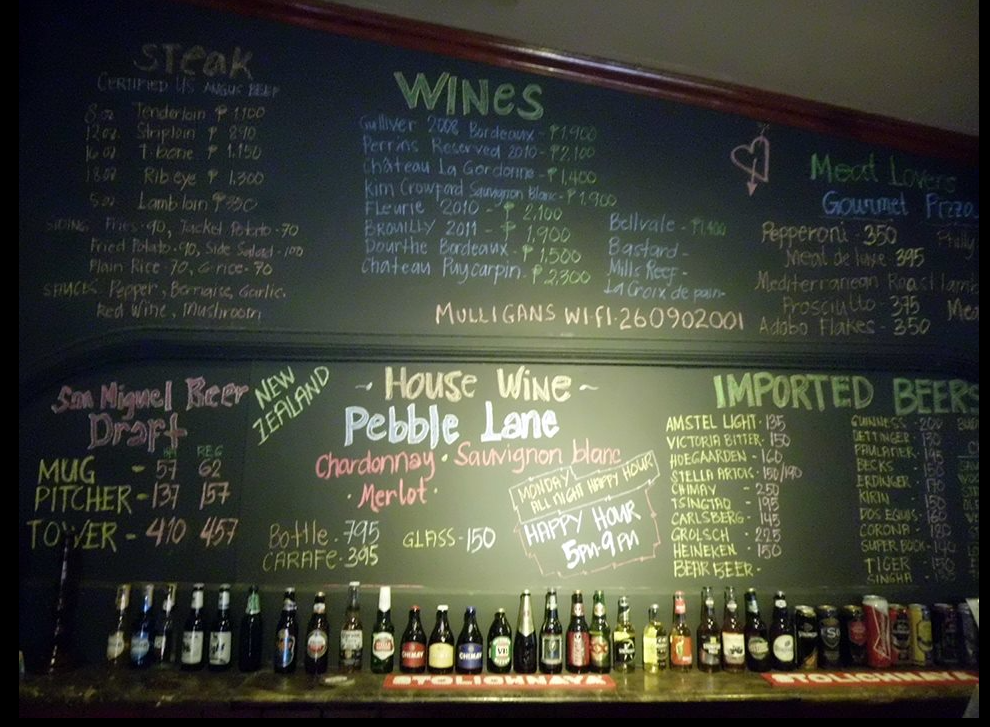 STEAK
CERTIFIED US ANGUS BEEF
8 oz Tenderloin ₱ 1,100
12 oz. Striploin ₱ 890
16 oz. T-bone ₱ 1,150
18 oz Rib eye ₱ 1,300
5 oz Lamb loin ₱
SIDING: Fries-90, Jacket Potato-70
Fried Potato-90, Side Salad-100
Plain Rice-70, G-rice-90
SAUCES: Pepper, Bernaise, Garlic,
Red Wine, Mushroom
WINES
Gulliver 2008 Bordeaux-₱1,900
Perrins Reserved 2010-₱2,100
Château La Gordonne-₱1,400
Kim Crowford Sauvignon Blanc-₱1,900
FLEURIE 2010 - ₱ 2,100
BROUILLY 2011 - ₱ 1,900
Dourthe Bordeaux-₱ 1,500
Chateau Puycarpin-₱ 2,300
Bellvale - ₱1,400
Bastard-
Mills Reef-
La Croix de pain-
MULLIGANS WI.FI-260902001
Meat Lovers
Gourmet Pizza
Pepperoni-350
Philly
Meat de luxe 395
Mediterranean Roast lamb
Prosciutto-375
Mea
Adobo Flakes-350
San Miguel Beer
Draft
HH REG
MUG - 57 62
PITCHER-137 157
TOWER-410 457
NEW
ZEALAND
~ HOUSE WINE ~
Pebble Lane
Chardonnay · Sauvignon blanc
· Merlot ·
Bottle-795
CARAFE-395
GLASS-150
MONDAY
ALL NIGHT HAPPY HOUR
HAPPY HOUR
5PM-9PM
IMPORTED BEERS
AMSTEL LIGHT-135
VICTORIA BITTER-150
HOEGAARDEN-160
STELLA ARTOIS-150/190
CHIMAY - 250
TSINGTAO - 195
CARLSBERG-145
GROLSCH - 225
HEINEKEN - 150
BEAR BEER-
GUINNESS
OETTINGER - 130
PAULANER 195
BECKS
ERDINGER
KIRIN
DOS EQUIS
CORONA
SUPER BOCK-140
TIGER - 150
SINGHA
CHIMAY
CHIMAY
VB
STOLICHNAYA
STOLICHNAYA